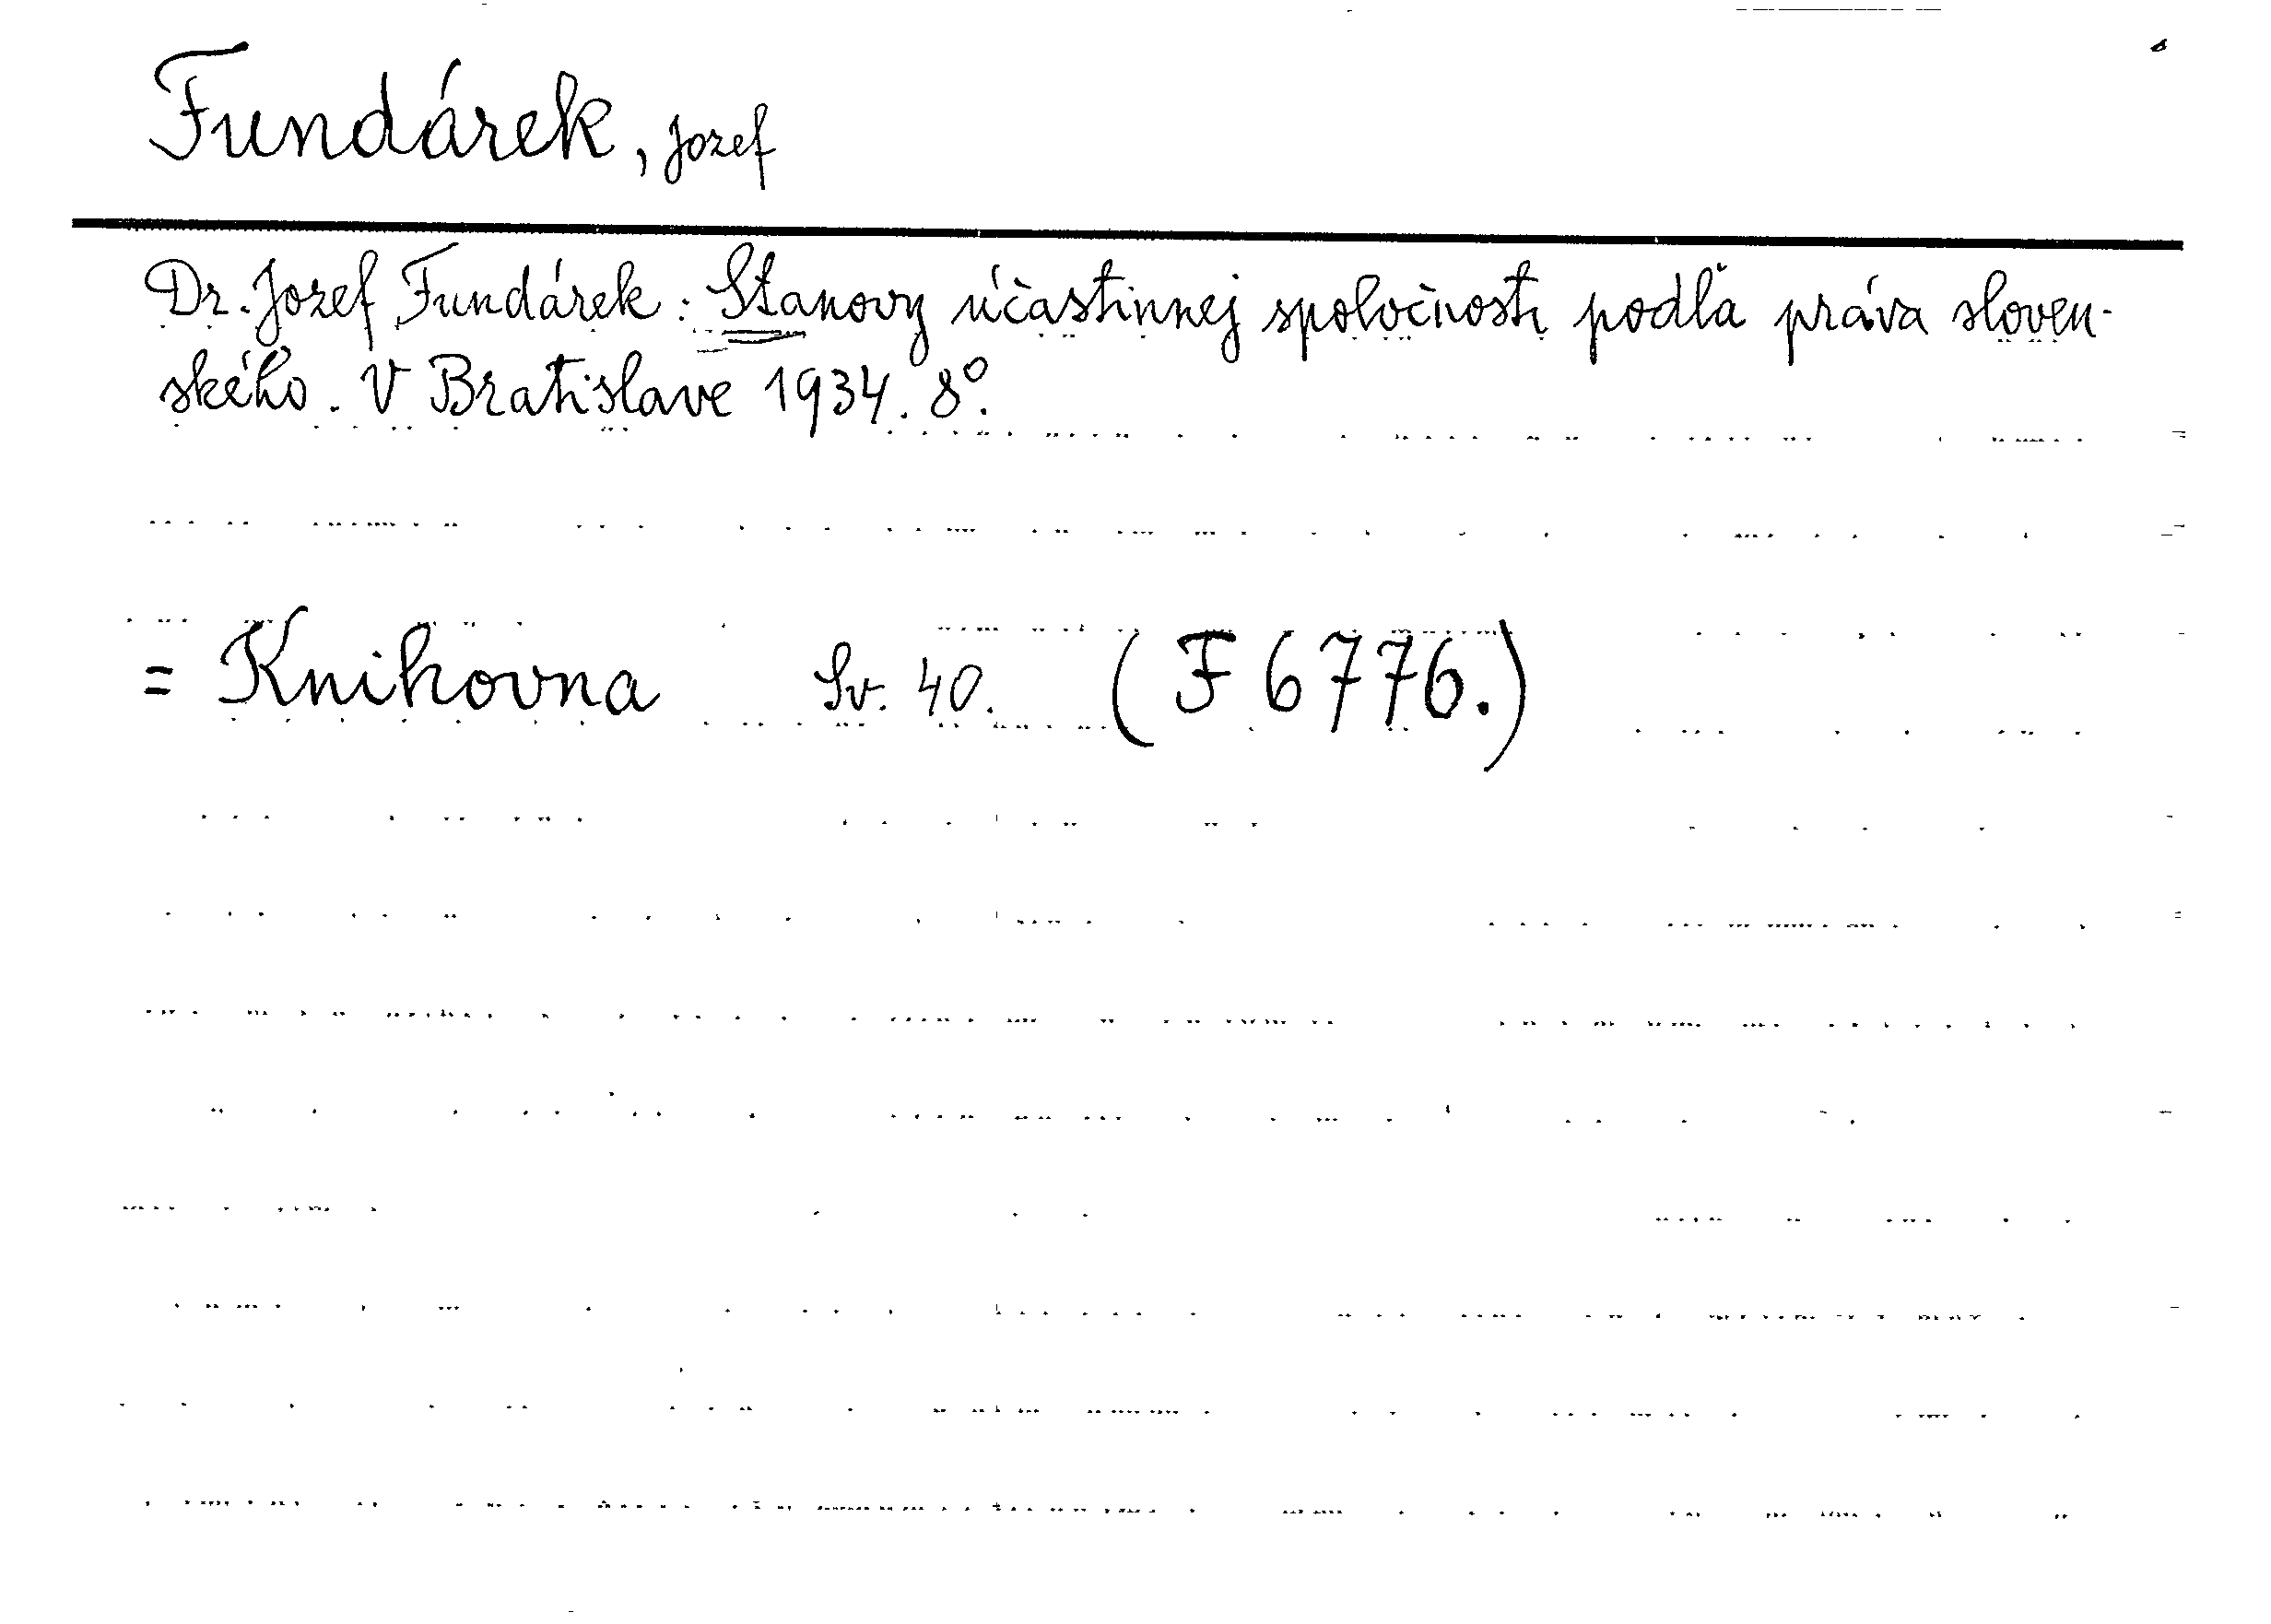 Fundárek, Jozef
Dr. Jozef Fundárek: Stanovy účastinnej spoločnosti podľa práva sloven-
ského. V Bratislave 1934. 8º.
= Knihovna Sv. 40. (F 6776.)